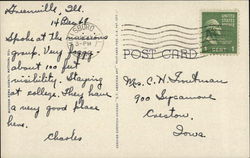 Greenville, Ill.
14 Dec 48
Spoke at the missions
group. Very foggy -
about 100 feet
visibility. Staying
at college. They have
a very good place
here.
Charles
SBURG
3-PM
POST CARD
Mrs. C. H. Troutman
900 Sycamore
Creston,
Iowa